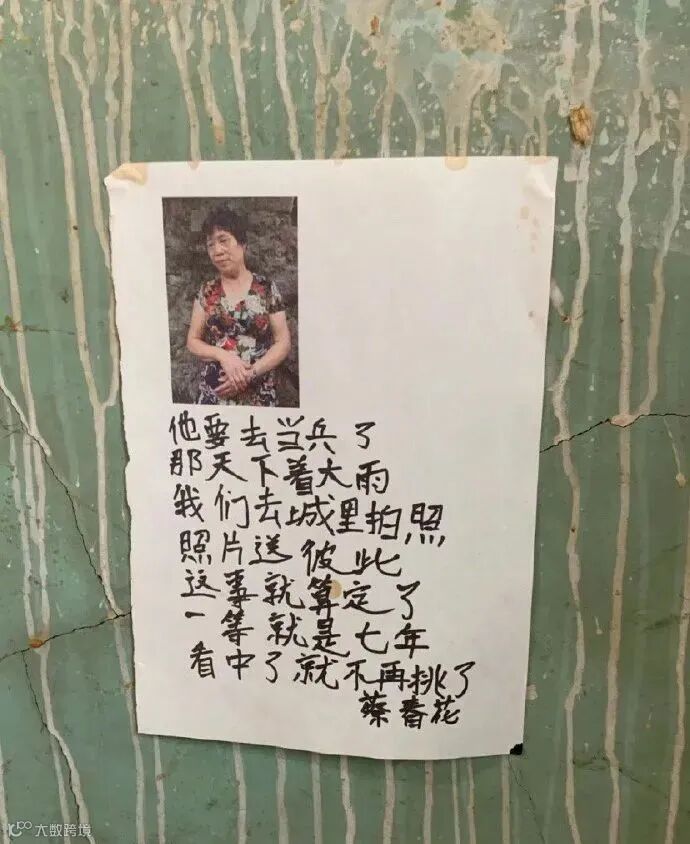 他要去当兵了
那天下着大雨
我们去城里拍照
照片送彼此
这事就算定了
一等就是七年
看中了就不再挑了
蔡春花
大数跨境